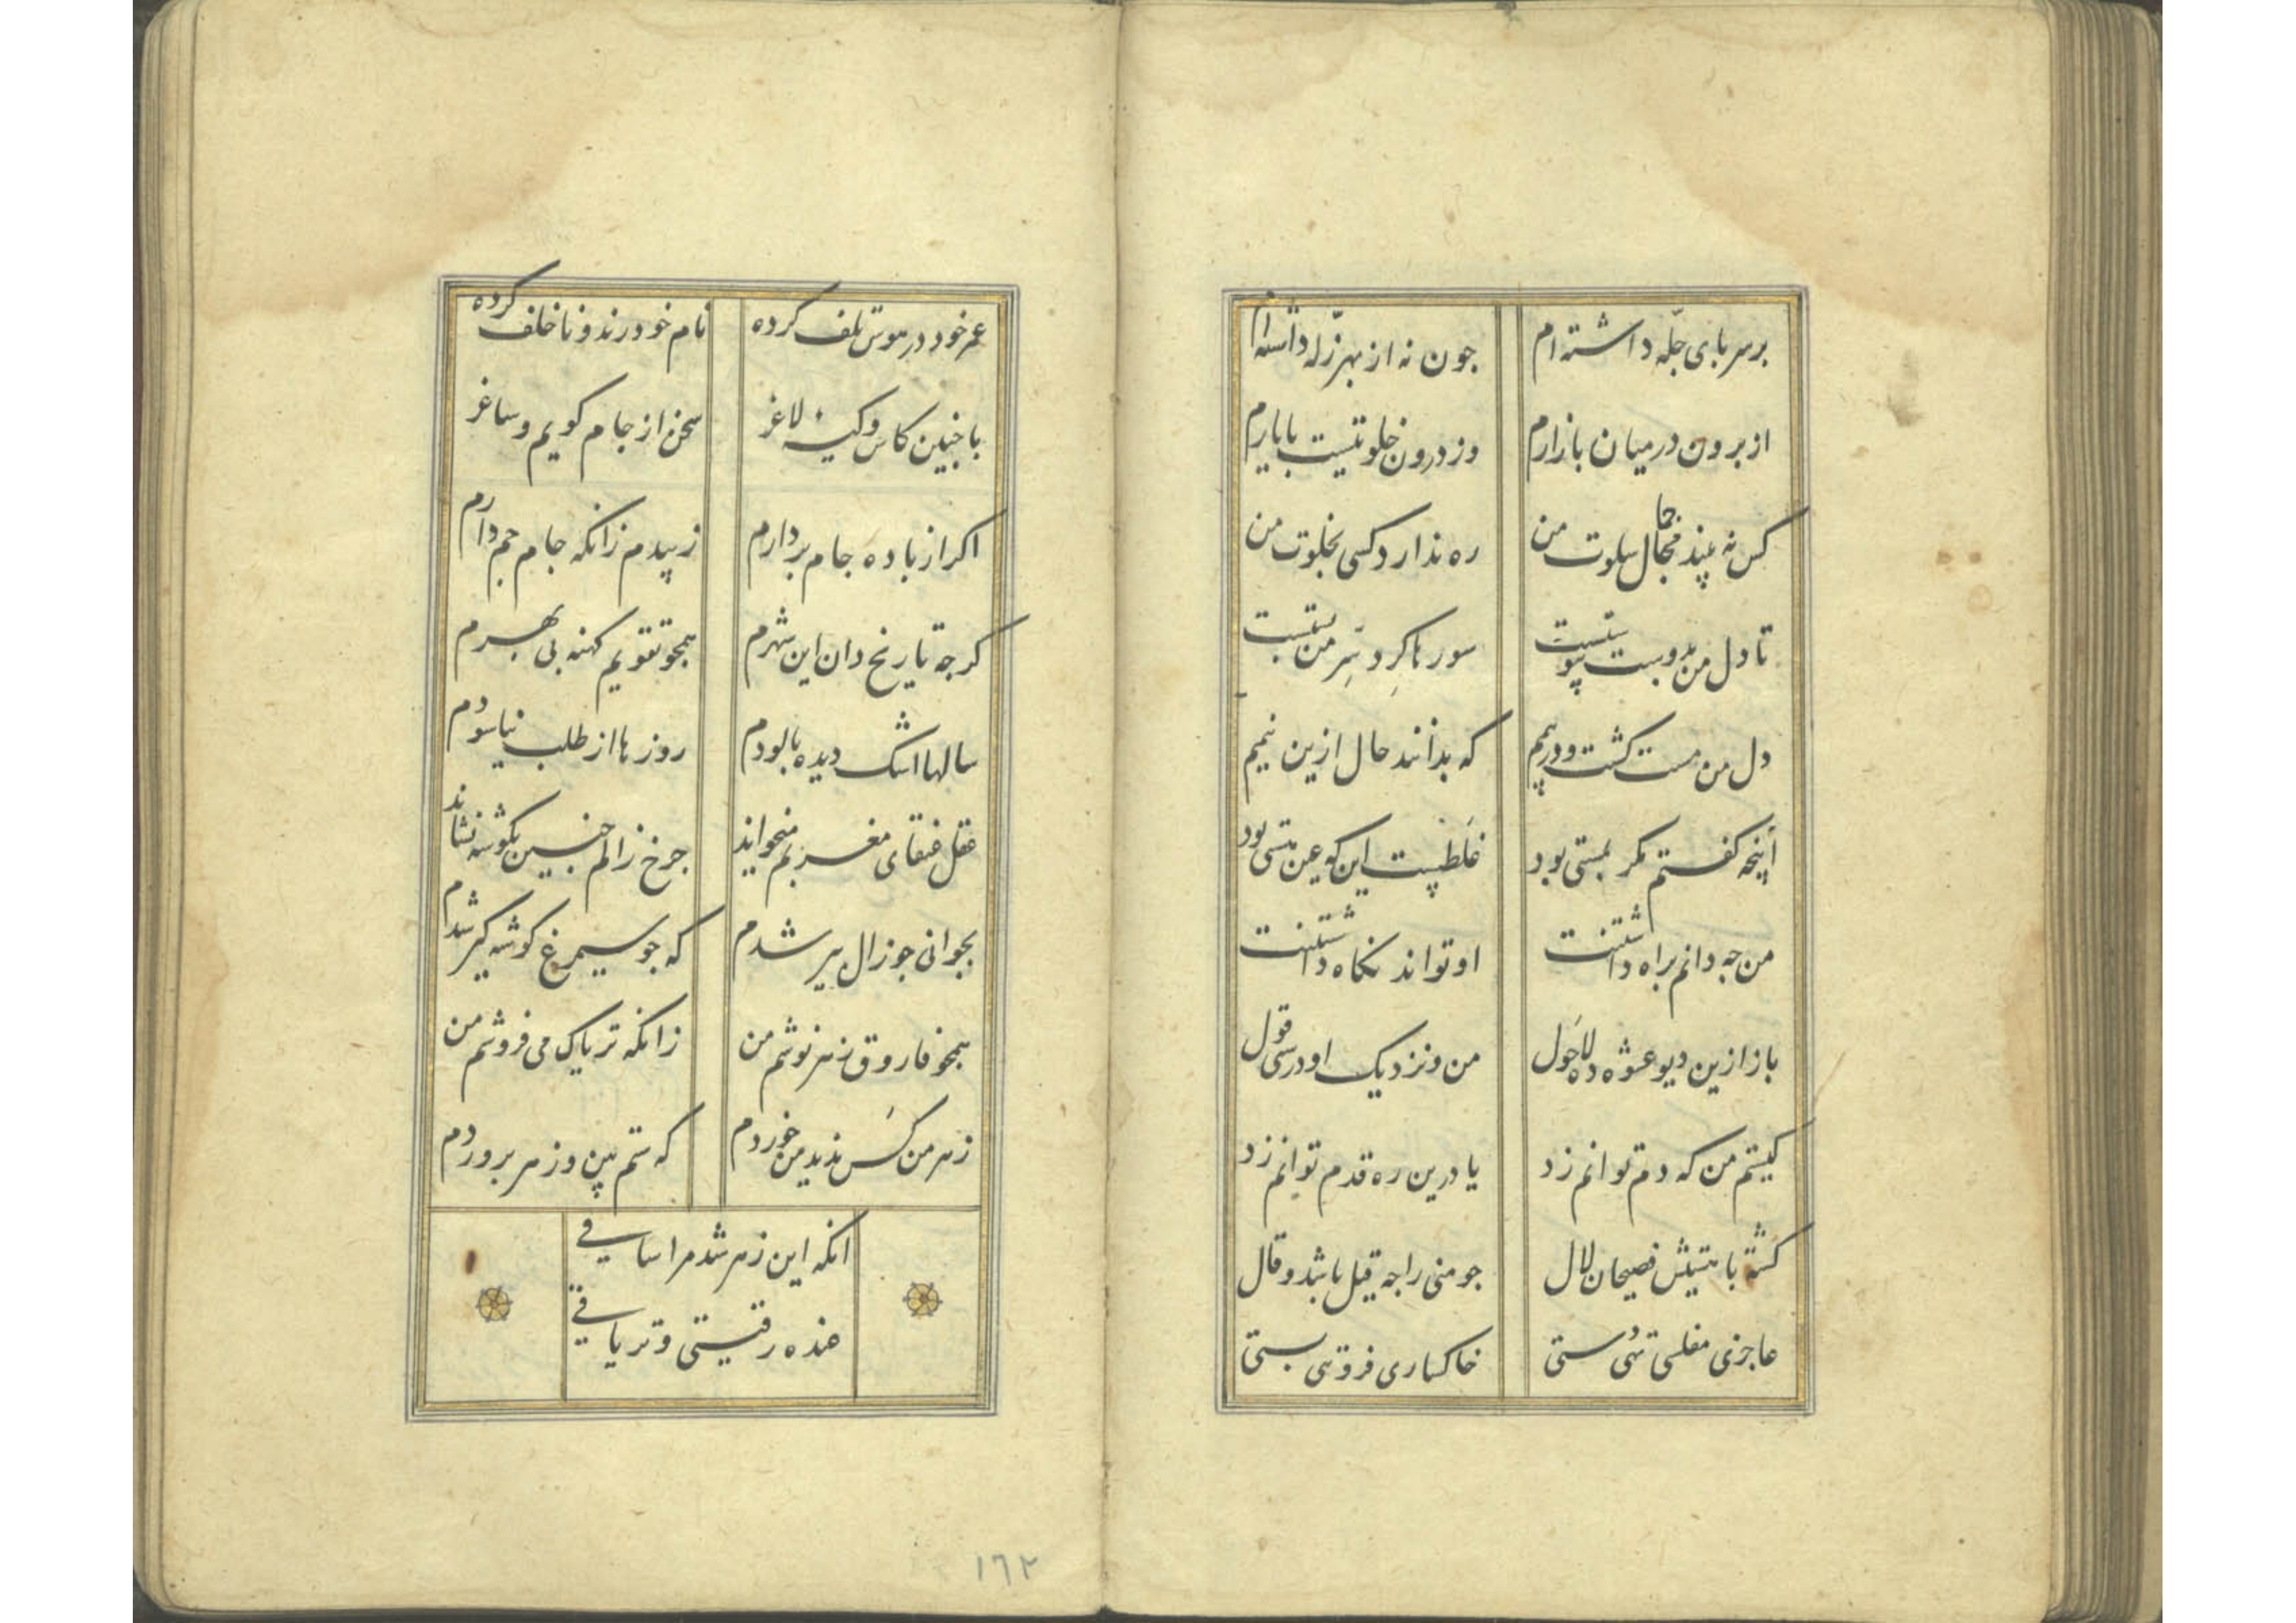 برسر بای چلّه داشته ام
جون نه از بهر زلّه داشته ام
از برون در میان بازارم
وز درون خلوتیست با یارم
کس نه بیند جمال سلوت من
ره ندارد کسی بخلوت من
تا دل من بدوست پیوستست
سورها کرد سر من بستست
دل من مست کشت و در بیمم
که بدانند حال ازین نیمم
آنچه کفتم مکر بمستی بود
غلطیست این که عین هستی بود
من جه دانم براه داشتنت
او تواند نکاه داشتنت
باز ازین دیو عشوه ده لاحول
من و نزدیک او درستی قول
کیستم من که دم توانم زد
یا درین ره قدم توانم زد
کشته با هستیش فصیحان لال
جو منی را جه قیل باشد و قال
عاجزی مفلسی تهی دستی
خاکساری فروتنی بستی
عمر خود در هوس تلف کرده
نام خود رند و ناخلف کرده
با جنین کاس و کیسهٔ لاغر
سخن از جام کویم و ساغر
اکر از باده جام بردارم
زیبدم زانکه جام جم دارم
کرجه تاریخ دان این شهرم
همجو تقویم کهنه بی بهرم
سالها اشک دیده بالودم
روزها از طلب نیاسودم
عقل عنقای مغربم میخواند
جرخ زالم جنین بکوشه نشاند
بجوانی جو زال بیر شدم
که جو سیمرغ کوشه کیر شدم
همجو فاروق زهر نوشم من
زانکه تریاک می فروشم من
زهر من کس ندید من خوردم
که ستم بین و زهر بروردم
انکه این زهر شد مرا ساقی
عنده رقیتی و تریاقی
١٦٢